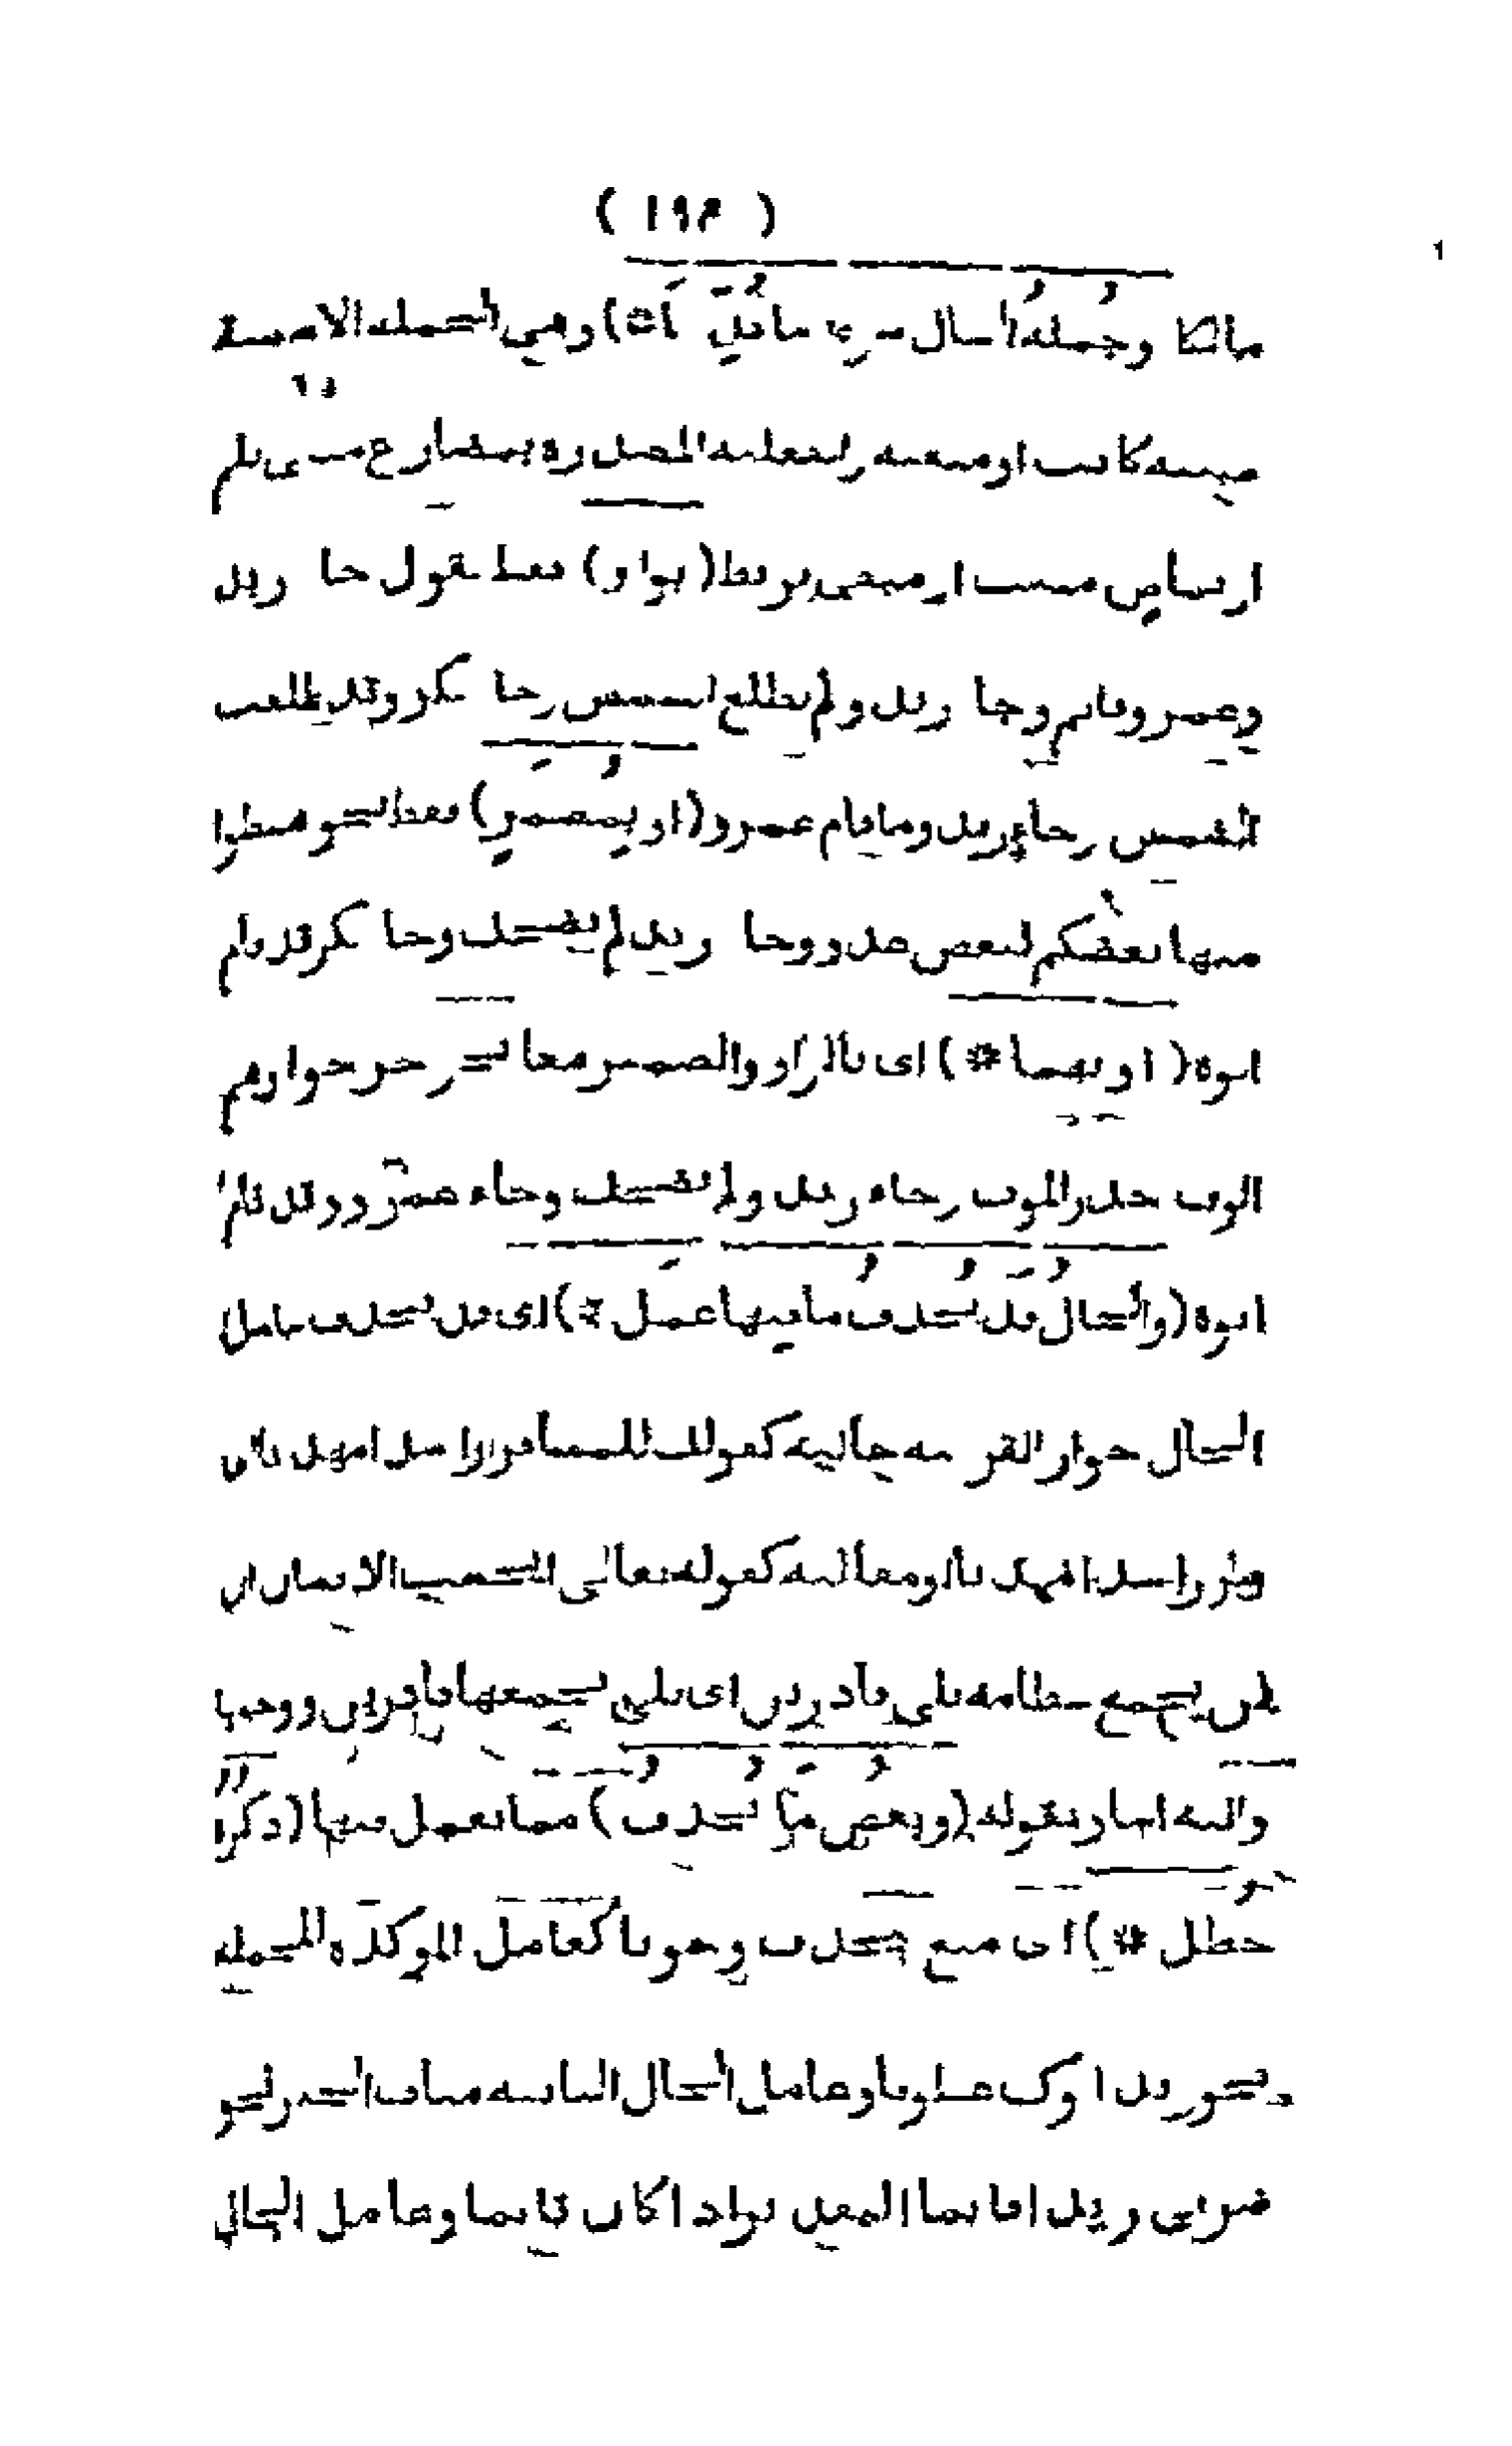 ( ١٩٢ )
وجملة الحال سوى ما قدما) وهي الجملة الاسمية
مثبتة كانت او منفية والفعلية المصدرة بمضارع منفي بلم
او بماض مثبت او منفي تربط (بواو) فقط تقول جا زيد
وعمرو قائم وجا زيد ولم تطلع الشمس وجا بكر وقد طلعت
الشمس وجاء زيد وما قام عمرو (او بمضمر) فقط نحو اهبطوا
منها بعضكم لبعض عدو وجا زيد لم يضحك وجا بكر قد قام
ابوه (او بهما *) اى بالواو والضمير معا نحو خرجوا وهم
الوف حذر الموت وجاء زيد ولم يضحك وجاء عمرو وقد قام
ابوه (والحال قد يحذف ما فيها عمل *) اى قد يحذف عامل
الحال جوازا لقرينة حالية كقولك للمسافر راشدا مهديا اى
سافر راشدا مهديا او مقالية كقوله تعالى ايحسب الانسان ان
لن نجمع عظامه بلى قادرين اى بلى نجمعها قادرين ووجوبا
واليه اشار بقوله (وبعض ما يحذف) مما يعمل فيها (ذكره
حظل *) اى منع يحذف وجوبا كعامل المؤكدة للجملة
نحو زيد ابوك عطوفا وعامل الحال النائبة مناب الخبر نحو
ضربي زيدا قائما المعنى اذا كان قائما وعامل الحال